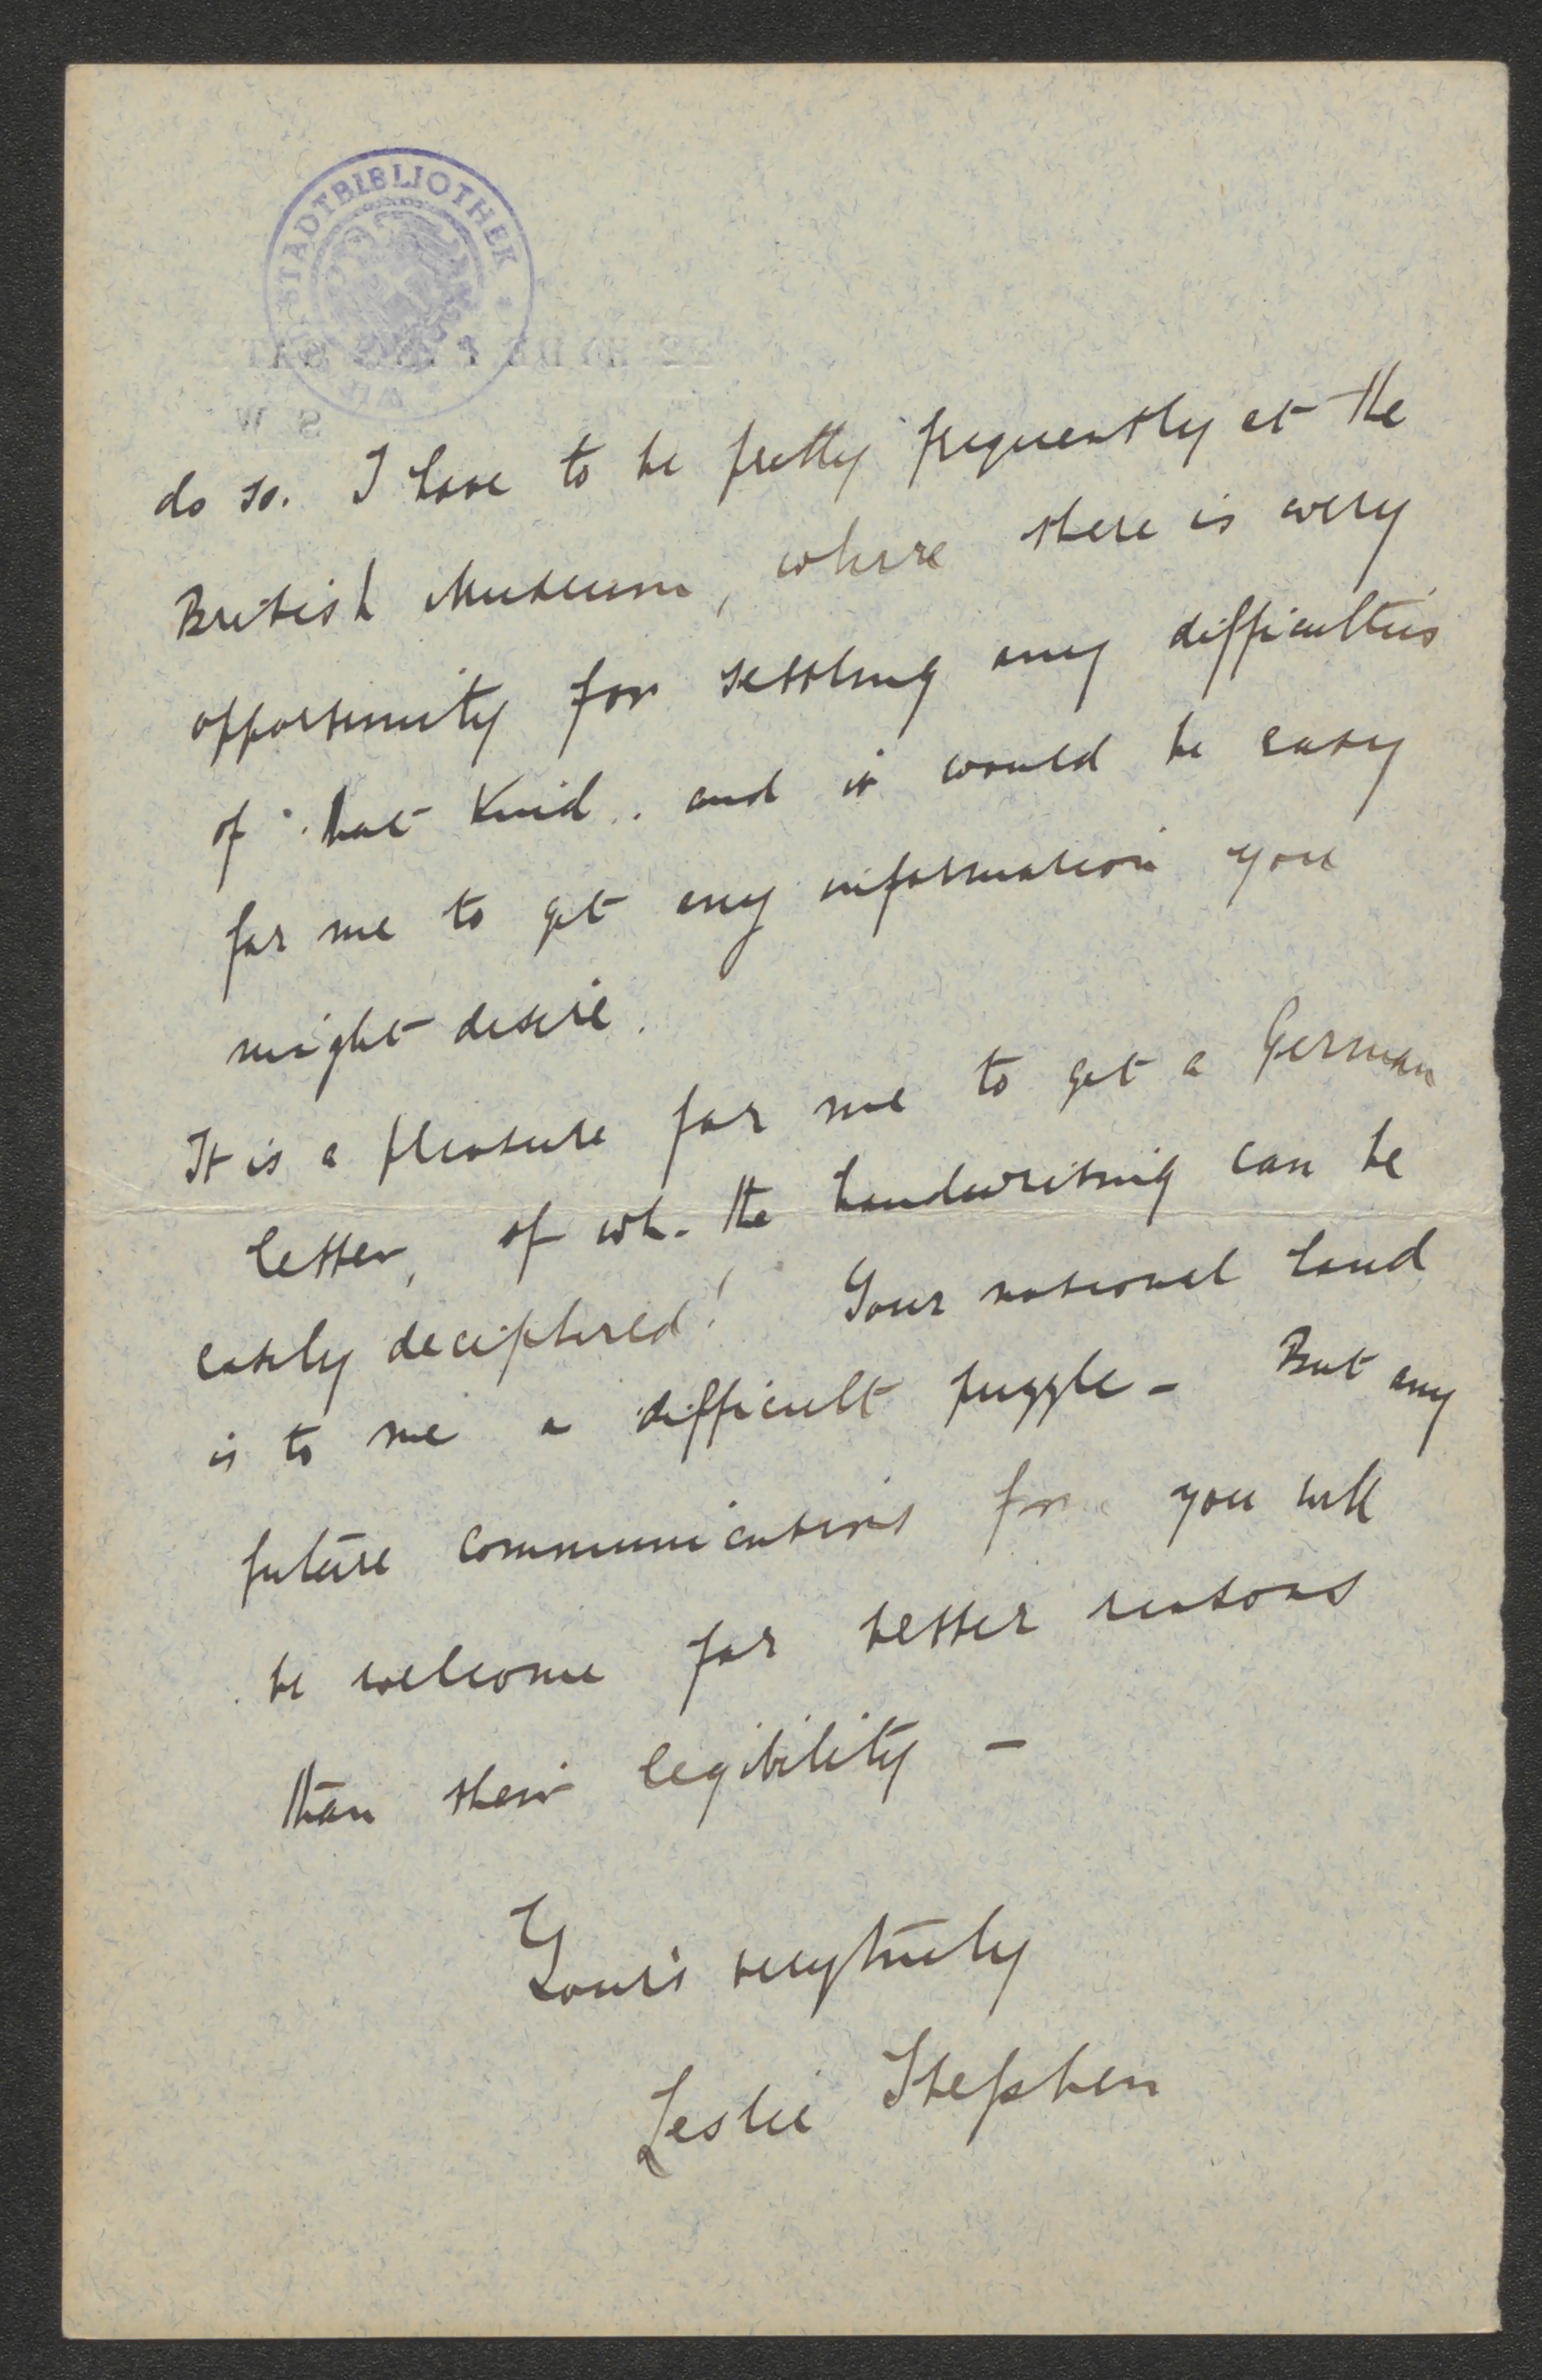 STADTBIBLIOTHEK
do so. I have to be pretty frequently at the
British Museum, where there is every
opportunity for settling any difficulties
of that kind. and it would be easy
for me to get any information you
might desire.
It is a pleasure for me to get a German
letter, of wh. the handwriting can be
easily deciphered! Your national hand
is to me a difficult puzzle - But any
future communications from you will
be welcome for better reasons
than their legibility -
Yours very truly
Leslie Stephen